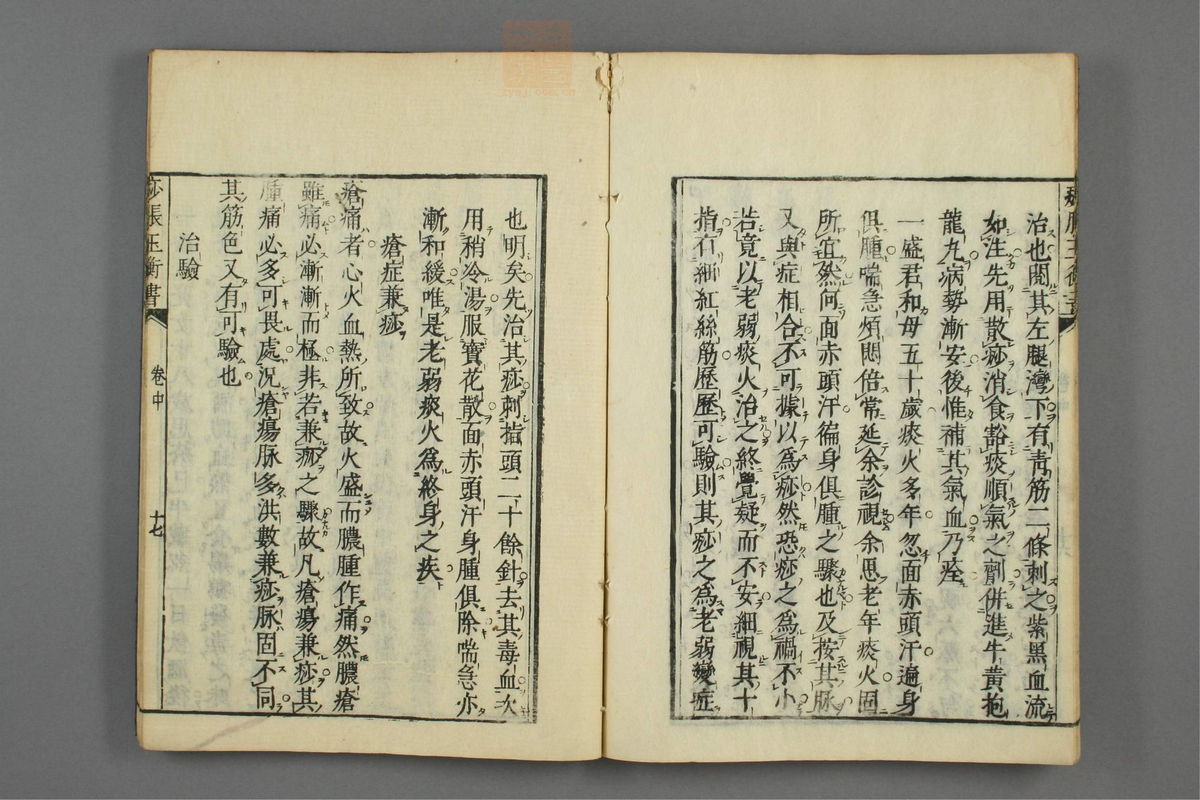 治也閲其左腿灣下有青筋二條刺之紫黑血流
如注先用散痧消食豁痰順氣之劑併進牛黃抱
龍丸病勢漸安後惟補其氣血乃痊
一盛君和母五十歲痰火多年忽面赤頭汗遍身
俱腫喘急煩悶倍常延余診視余思老年痰火固
所宜然何面赤頭汗徧身俱腫之驟也及按其脉
又與症相合不可據以為痧然恐痧之為禍不小
若竟以老弱痰火治之終覺疑而不安細視其十
指有細紅絲筋歷歷可驗則其痧之為老弱變症
也明矣先治其痧刺指頭二十餘針去其毒血次
用稍冷湯服寶花散面赤頭汗身腫俱除喘急亦
漸和緩唯是老弱痰火為終身之疾
瘡症兼痧
瘡痛者心火血熱所致故火盛而膿腫作痛然膿瘡
雖痛必漸漸而極非若兼痧之驟故凡瘡瘍兼痧其
腫痛必多可畏處況瘡瘍脉多洪數兼痧脉固不同
其筋色又有可驗也
治驗
痧脹玉衡書
卷中
十七